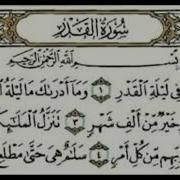 سُورَةُ الْقَدْرِ
بِسْمِ اللَّهِ الرَّحْمَٰنِ الرَّحِيمِ
فِي لَيْلَةِ الْقَدْرِ ١ وَمَا أَدْرَىٰكَ مَا لَيْلَةُ
خَيْرٌ مِّنْ أَلْفِ شَهْرٍ ٣ تَنَزَّلُ الْمَلَٰٓئِكَةُ
رَبِّهِم مِّن كُلِّ أَمْرٍ ٤ سَلَٰمٌ هِيَ حَتَّىٰ مَطْلَعِ